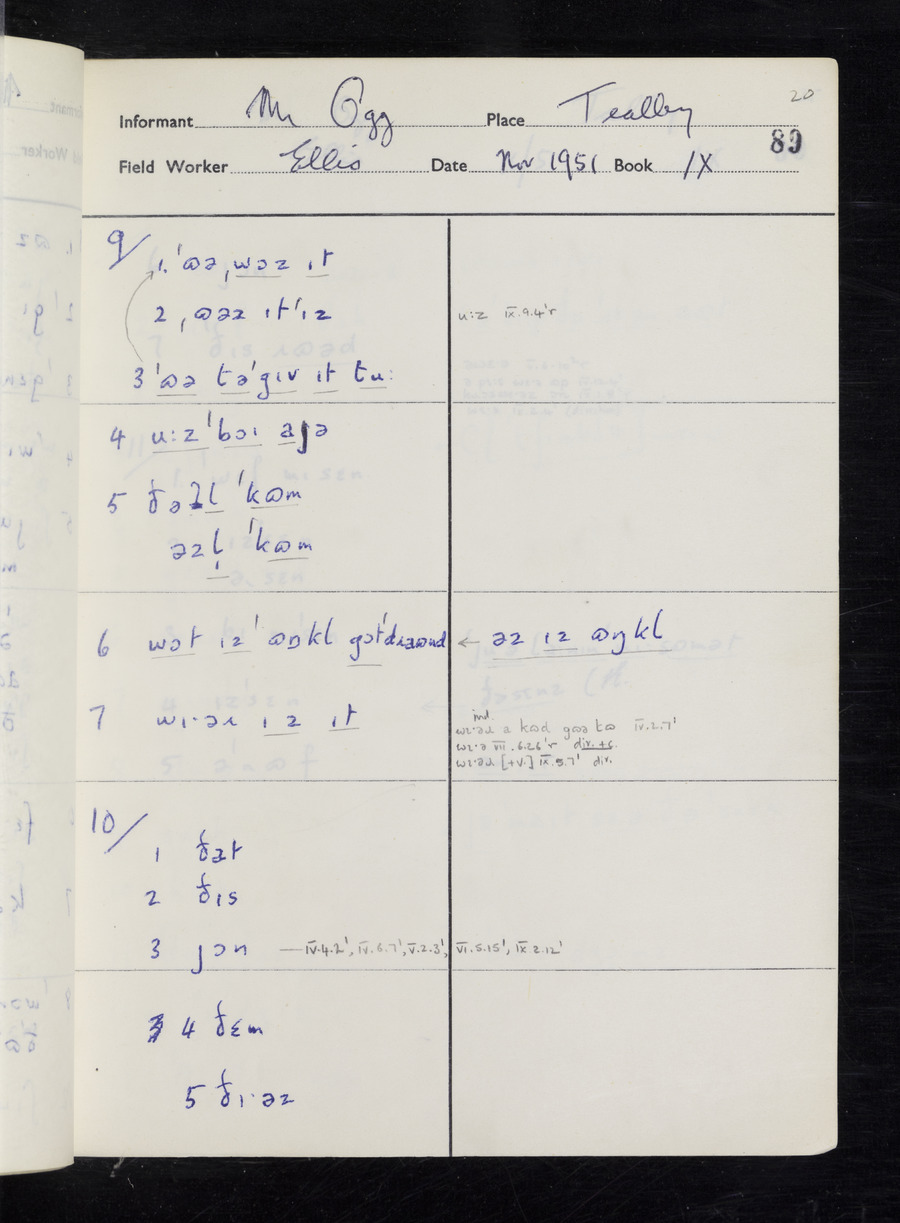 20
Informant Mr Ogg Place Tealby
89
Field Worker Ellis Date Nov 1951 Book IX
9/ 1. ˈʊə ˌwɔz ɪt
2 ˌʊəz ɪtˈɪz u:z IX.9.4'r
3 ˈʊə təˈgɪv ɪt tu:
4 u:z ˈbɔɪ aɟə
5 ðəl ˈkʊm
əzḷ ˈkʊm
6 wɔt ɪzˈ ʊŋkl gɔtˈdɹaʊnd ← əz ɪz ʊŋkl
7 wɪ·əɹ ɪz ɪt
ind.
wɪ·əɹ a kʊd gʊə tʊ IV.2.7'
wɪ·ə VII.6.26'r div.+c.
wɪ·əɹ [+V.] IX.5.7' div.
10/ 1 ðat
2 ðɪs
3 jɔn — IV.4.2', IV.6.7', V.2.3', VI.5.15', IX.2.12'
4 ðɛm
5 ðɪ·əz